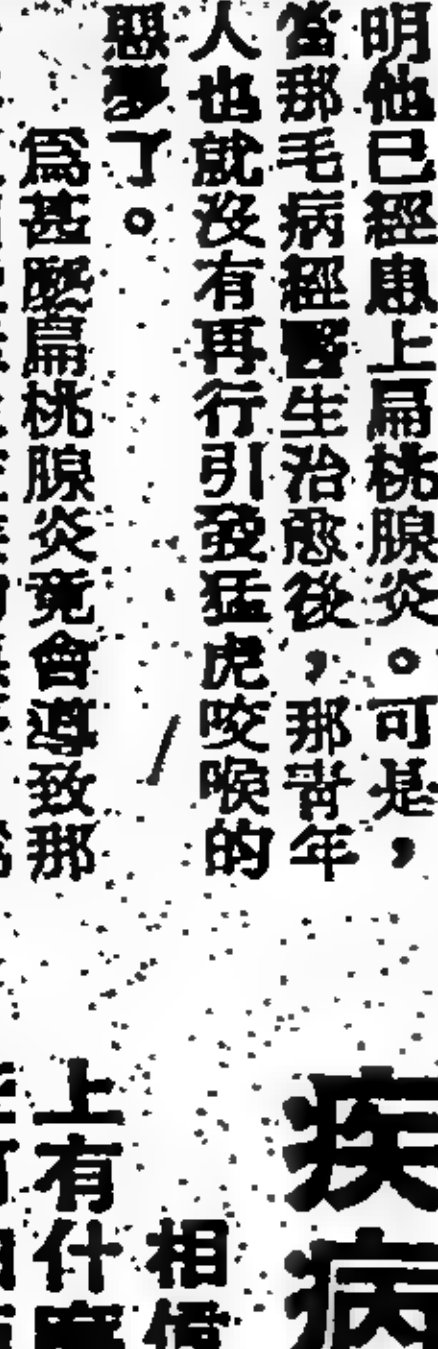 明他已經患上扁桃腺炎。可是，
當那毛病經醫生治愈後，那靑年
人也就沒有再行引發猛虎咬喉的
惡夢了。
爲甚麼扁桃腺炎竟會導致那
疾病
相信
上有什麼